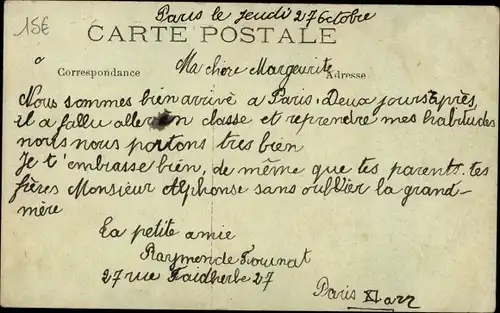 Paris le jeudi 27 Octobre
15€
CARTE POSTALE
Correspondance
Ma chère Marguerite
Adresse
Nous sommes bien arrivé a Paris. Deux jours après
il a fallu aller en classe et reprendre mes habitudes
nous nous portons tres bien
Je t'embrasse bien, de même que tes parents, tes
frères Monsieur Alphonse sans oublier la grand-
mère
La petite amie
Raymonde
27 rue Faidherbe 27
Paris XI arr